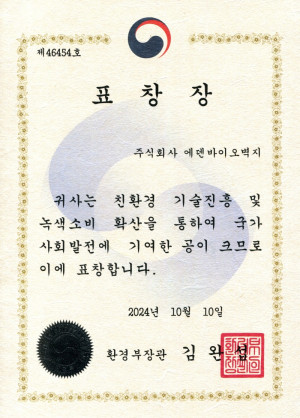 제46454호
표창장
주식회사 에덴바이오벽지
귀사는 친환경 기술진흥 및
녹색소비 확산을 통하여 국가
사회발전에 기여한 공이 크므로
이에 표창합니다.
2024년 10월 10일
환경부장관 김완섭